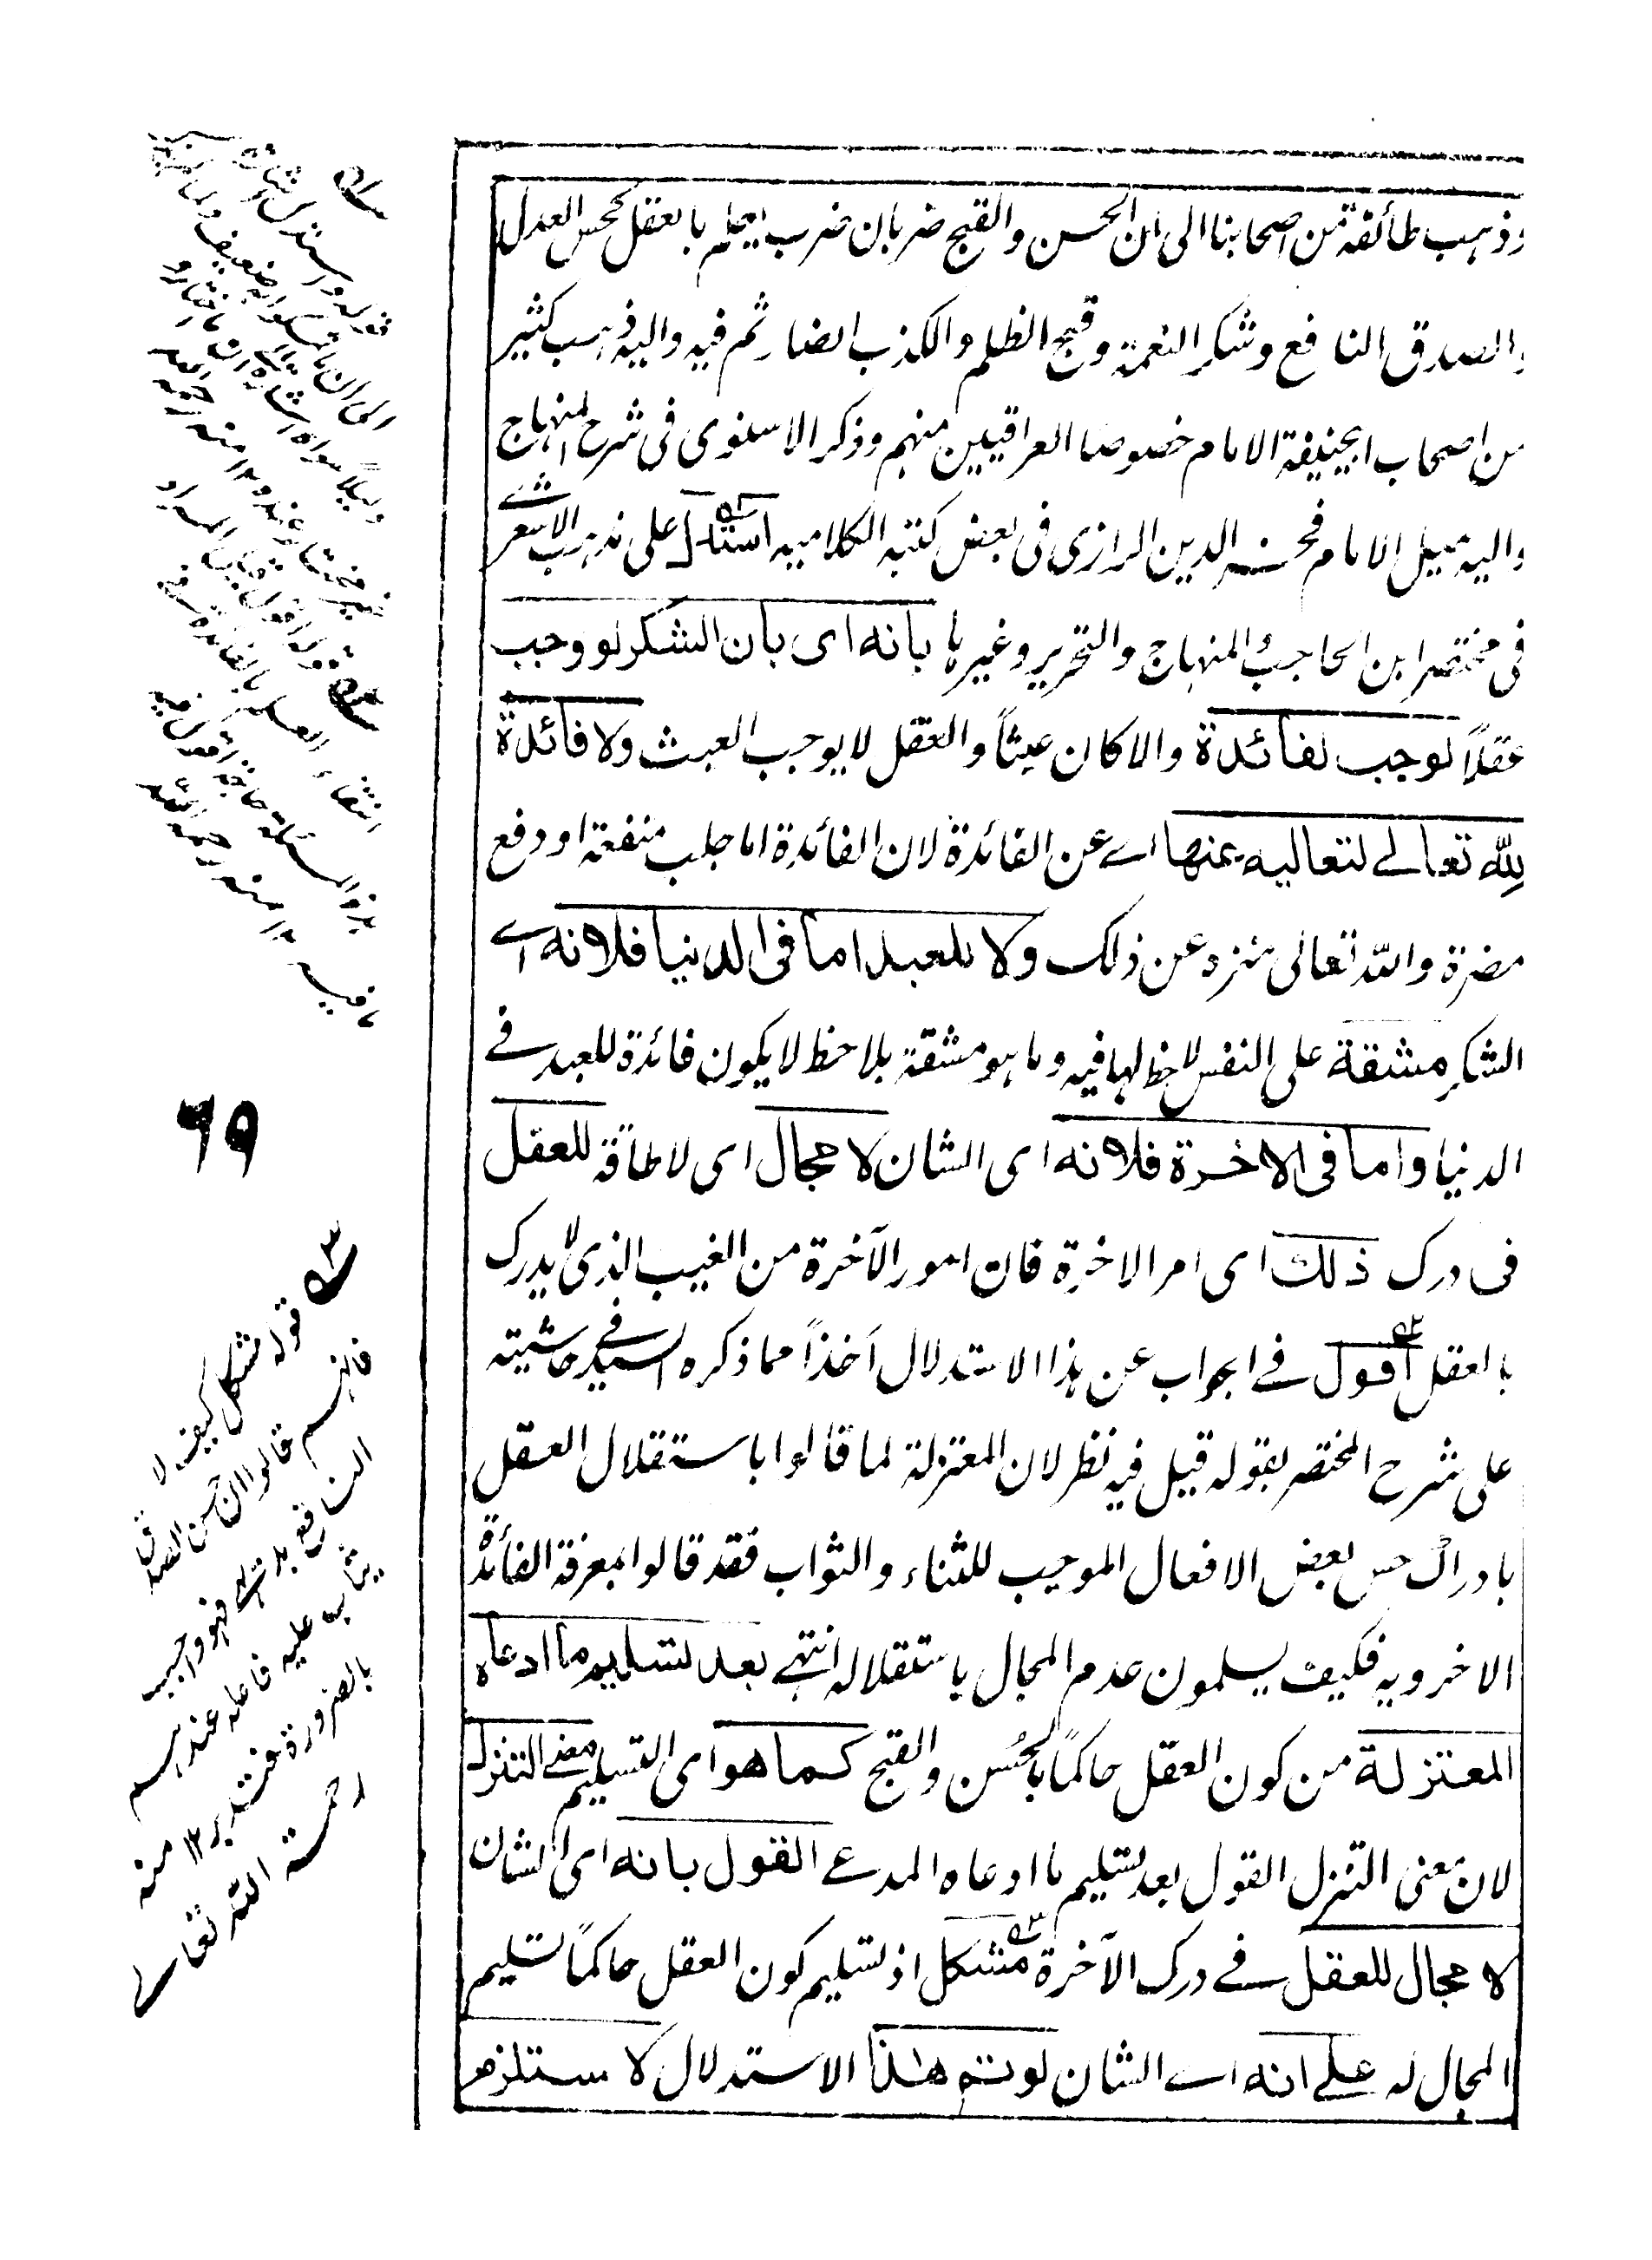 وذهب طائفة من اصحابنا الى ان الحسن والقبح ضربان ضرب يعلم بالعقل كحسن العدل
والصدق النافع وشكر النعمة وقبح الظلم والكذب الضار ثم فيه واليه ذهب كثير
من اصحاب ابيحنيفة الامام خصوصا العراقيين منهم وذكر الاسنوى فى شرح المنهاج
واليه ميل الامام فخر الدين الرازى فى بعض كتبه الكلاميه استدل على مذهب الاشعرى
فى مختصر ابن الحاجب والمنهاج والتحرير وغيرها بانه اى بان الشكر لو وجب
عقلاً لوجب لفائدة والا كان عبثاً والعقل لا يوجب العبث ولا فائدة
لله تعالى لتعاليه عنها اے عن الفائدة لان الفائدة اما جلب منفعة او دفع
مضرة والله تعالى منزه عن ذلك ولا للعبد اما فى الدنيا فلانه اے
الشكر مشقة على النفس لا حظ لها فيه وما هو مشقة بلا حظ لا يكون فائدة للعبد فے
الدنيا واما فى الاخرة فلانه اى الشان لا مجال اى لا طاقة للعقل
فى درك ذلك اى امر الاخرة فان امور الآخرة من الغيب الذى لا يدرك
بالعقل اقول فے الجواب عن هذا الاستدلال آخذاً مما ذكره السيد فے حاشيته
على شرح المختصر بقوله قيل فيه نظر لان المعتزلة لما قالوا باستقلال العقل
بادراك حسن بعض الافعال الموجب للثناء والثواب فقد قالوا بمعرفة الفائدة
الاخرويه فكيف يسلمون عدم المجال باستقلاله انتهے بعد تسليم ما ادعاه
المعتزلة من كون العقل حاكماً بالحُسن والقبح كما هو اى التسليم معنے التنزل
لان معنى التنزل القول بعد تسليم ما ادعاه المدعے القول بانه اى الشان
لا مجال للعقل فے درك الآخرة مشكل اذ تسليم كون العقل حاكماً تسليم
المجال له على انه اے الشان لو تم هذا الاستدلال لاستلزم
٦٩
قوله مشكل كيف لا
فانهم قالوا ان حسن الصدق
النافع بديهے فهو واجب
يثاب عليه فاعله عندهم
بالضرورة فتدبر ١٢ منه
رحمة الله تعالے